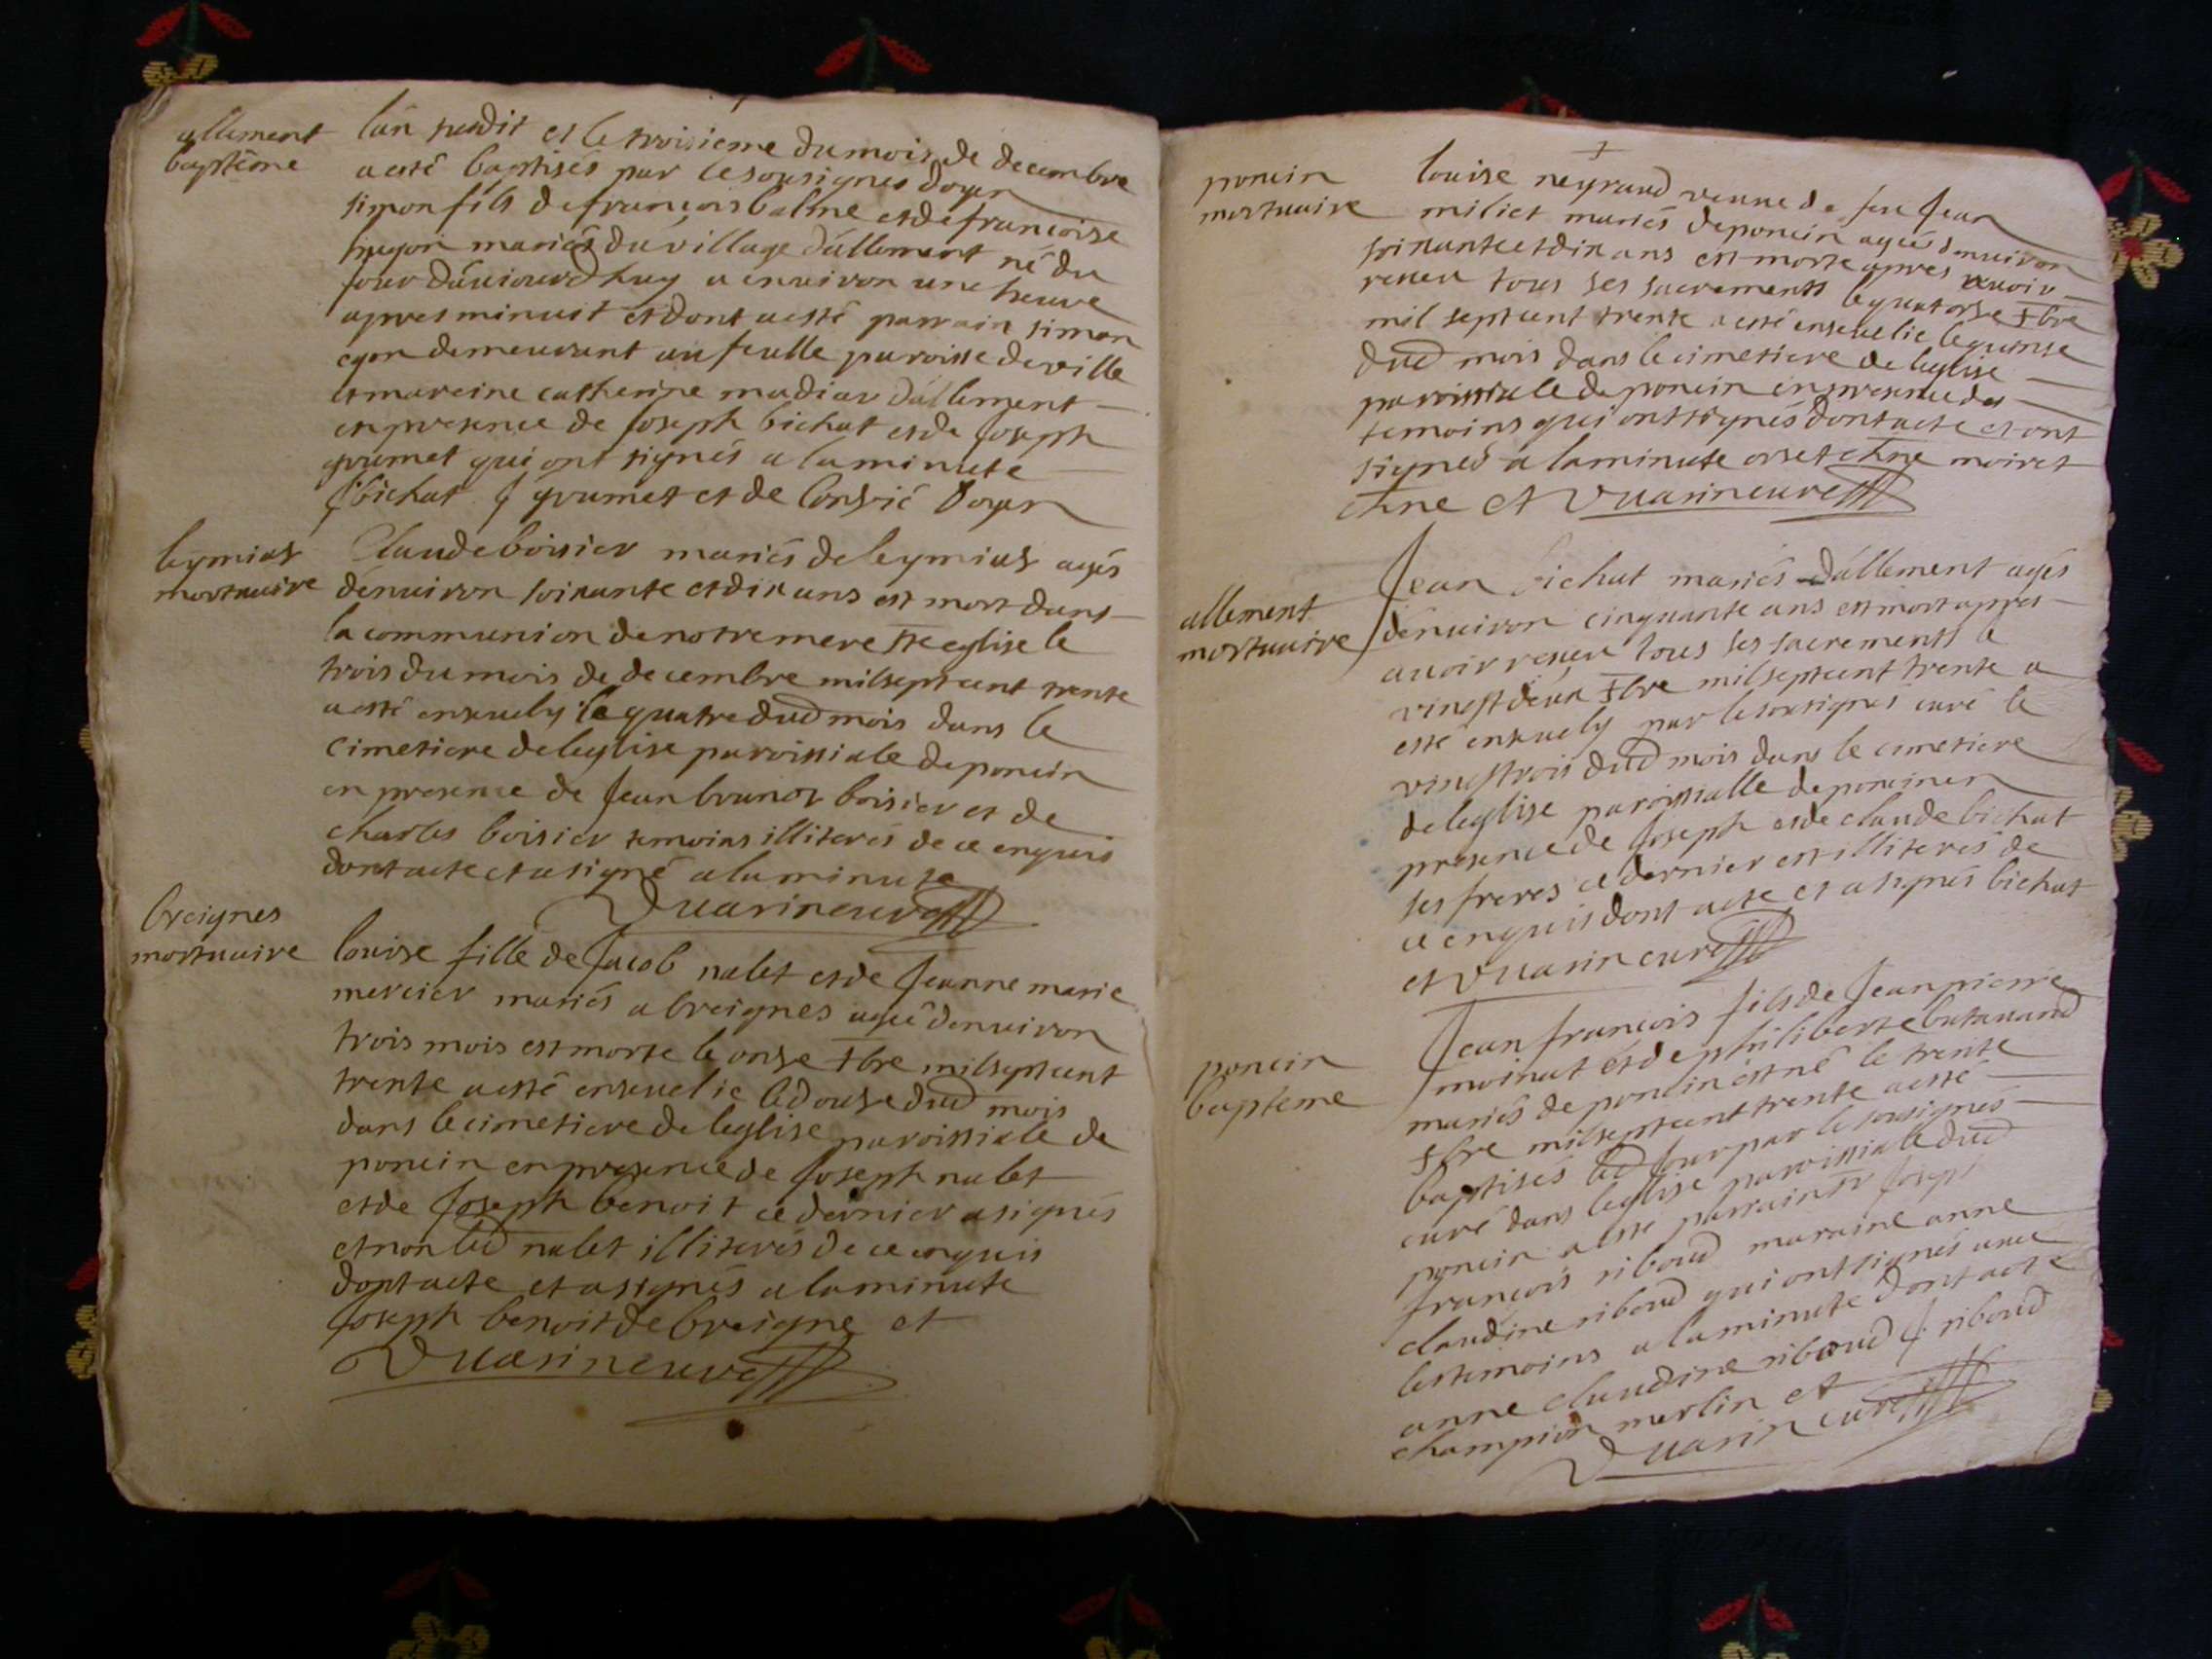 allement
baptême
lan susdit et le troisieme du mois de decembre
a esté baptisés par le sousignes doyen
simon fils de francois balme et de francoise
hugon mariés du village d'allement né du
jour d'auiourdhuy a enuiron une heure
apres minuit et dont a esté parrain simon
egon demeurant au feulle paroisse de ville
et mareine catherine madiar d'allement
en presence de Joseph bichat et de Joseph
grumet qui ont signés a la minute
J bichat J grumet et de Doyen
leymiat
mortuaire
Claude boisier mariés de leymiat agés
denuiron soixante et dix ans est mort dans
la communion de notre mere ste eglise le
trois du mois de decembre mil sept cent trente
a esté enseuely le quatre dud mois dans le
cimetiere de leglise paroissiale de poncin
en presence de Jean brunot boisier et de
charles boisier temoins illiterés de ce enquis
dont acte et a signé a la minute
Duarin curé
breignes
mortuaire
louise fille de Jacob nalet et de Jeanne marie
mercier mariés a breignes agée denuiron
trois mois est morte le onse xbre mil sept cent
trente a esté enseuelie le douse dud mois
dans le cimetiere de leglise paroissiale de
poncin en presence de Joseph nalet
et de Joseph benoit ce dernier a signés
et non led nalet illiterés de ce enquis
dont acte et a signés a la minute
Joseph benoit de breigne et
Duarin curé
poncin
mortuaire
louise neyraud veuue de feu Jean
miliet mariés de poncin agée denuiron
soixante et dix ans est morte apres auoir
reseu tous ses sacrements le quatorse xbre
mil sept cent trente a esté enseuelie le quinse
dud mois dans le cimetiere de leglise
paroissiale de poncin en presence des
temoins qui ont signés dont acte et ont
signés a la minute orset chne moiret
chne et Duarin curé
allement
mortuaire
Jean bichat mariés d'allement agés
denuiron cinquante ans est mort apres
auoir reseu tous ses sacrements le
vinst deux xbre mil sept cent trente a
esté enseuely par le sousignés curé le
vinst trois dud mois dans le cimetiere
de leglise paroissialle de poncin en
presence de Joseph et de claude bichat
ses freres ce dernier est illiterés de
ce enquis dont acte et a signés bichat
et Duarin curé
poncin
bapteme
Jean francois fils de Jean pierre
moinat et de philiberte batauand
mariés de poncin est né le trente
xbre mil sept cent trente a esté
baptisés led jour par le sousignés
curé dans leglise paroissiale dud
poncin a esté parrain sr Joseph
francois riboud maraine anne
claudine riboud qui ont signés auec
les temoins a la minute dont acte
anne claudine riboud J riboud
champion merlin et
Duarin curé